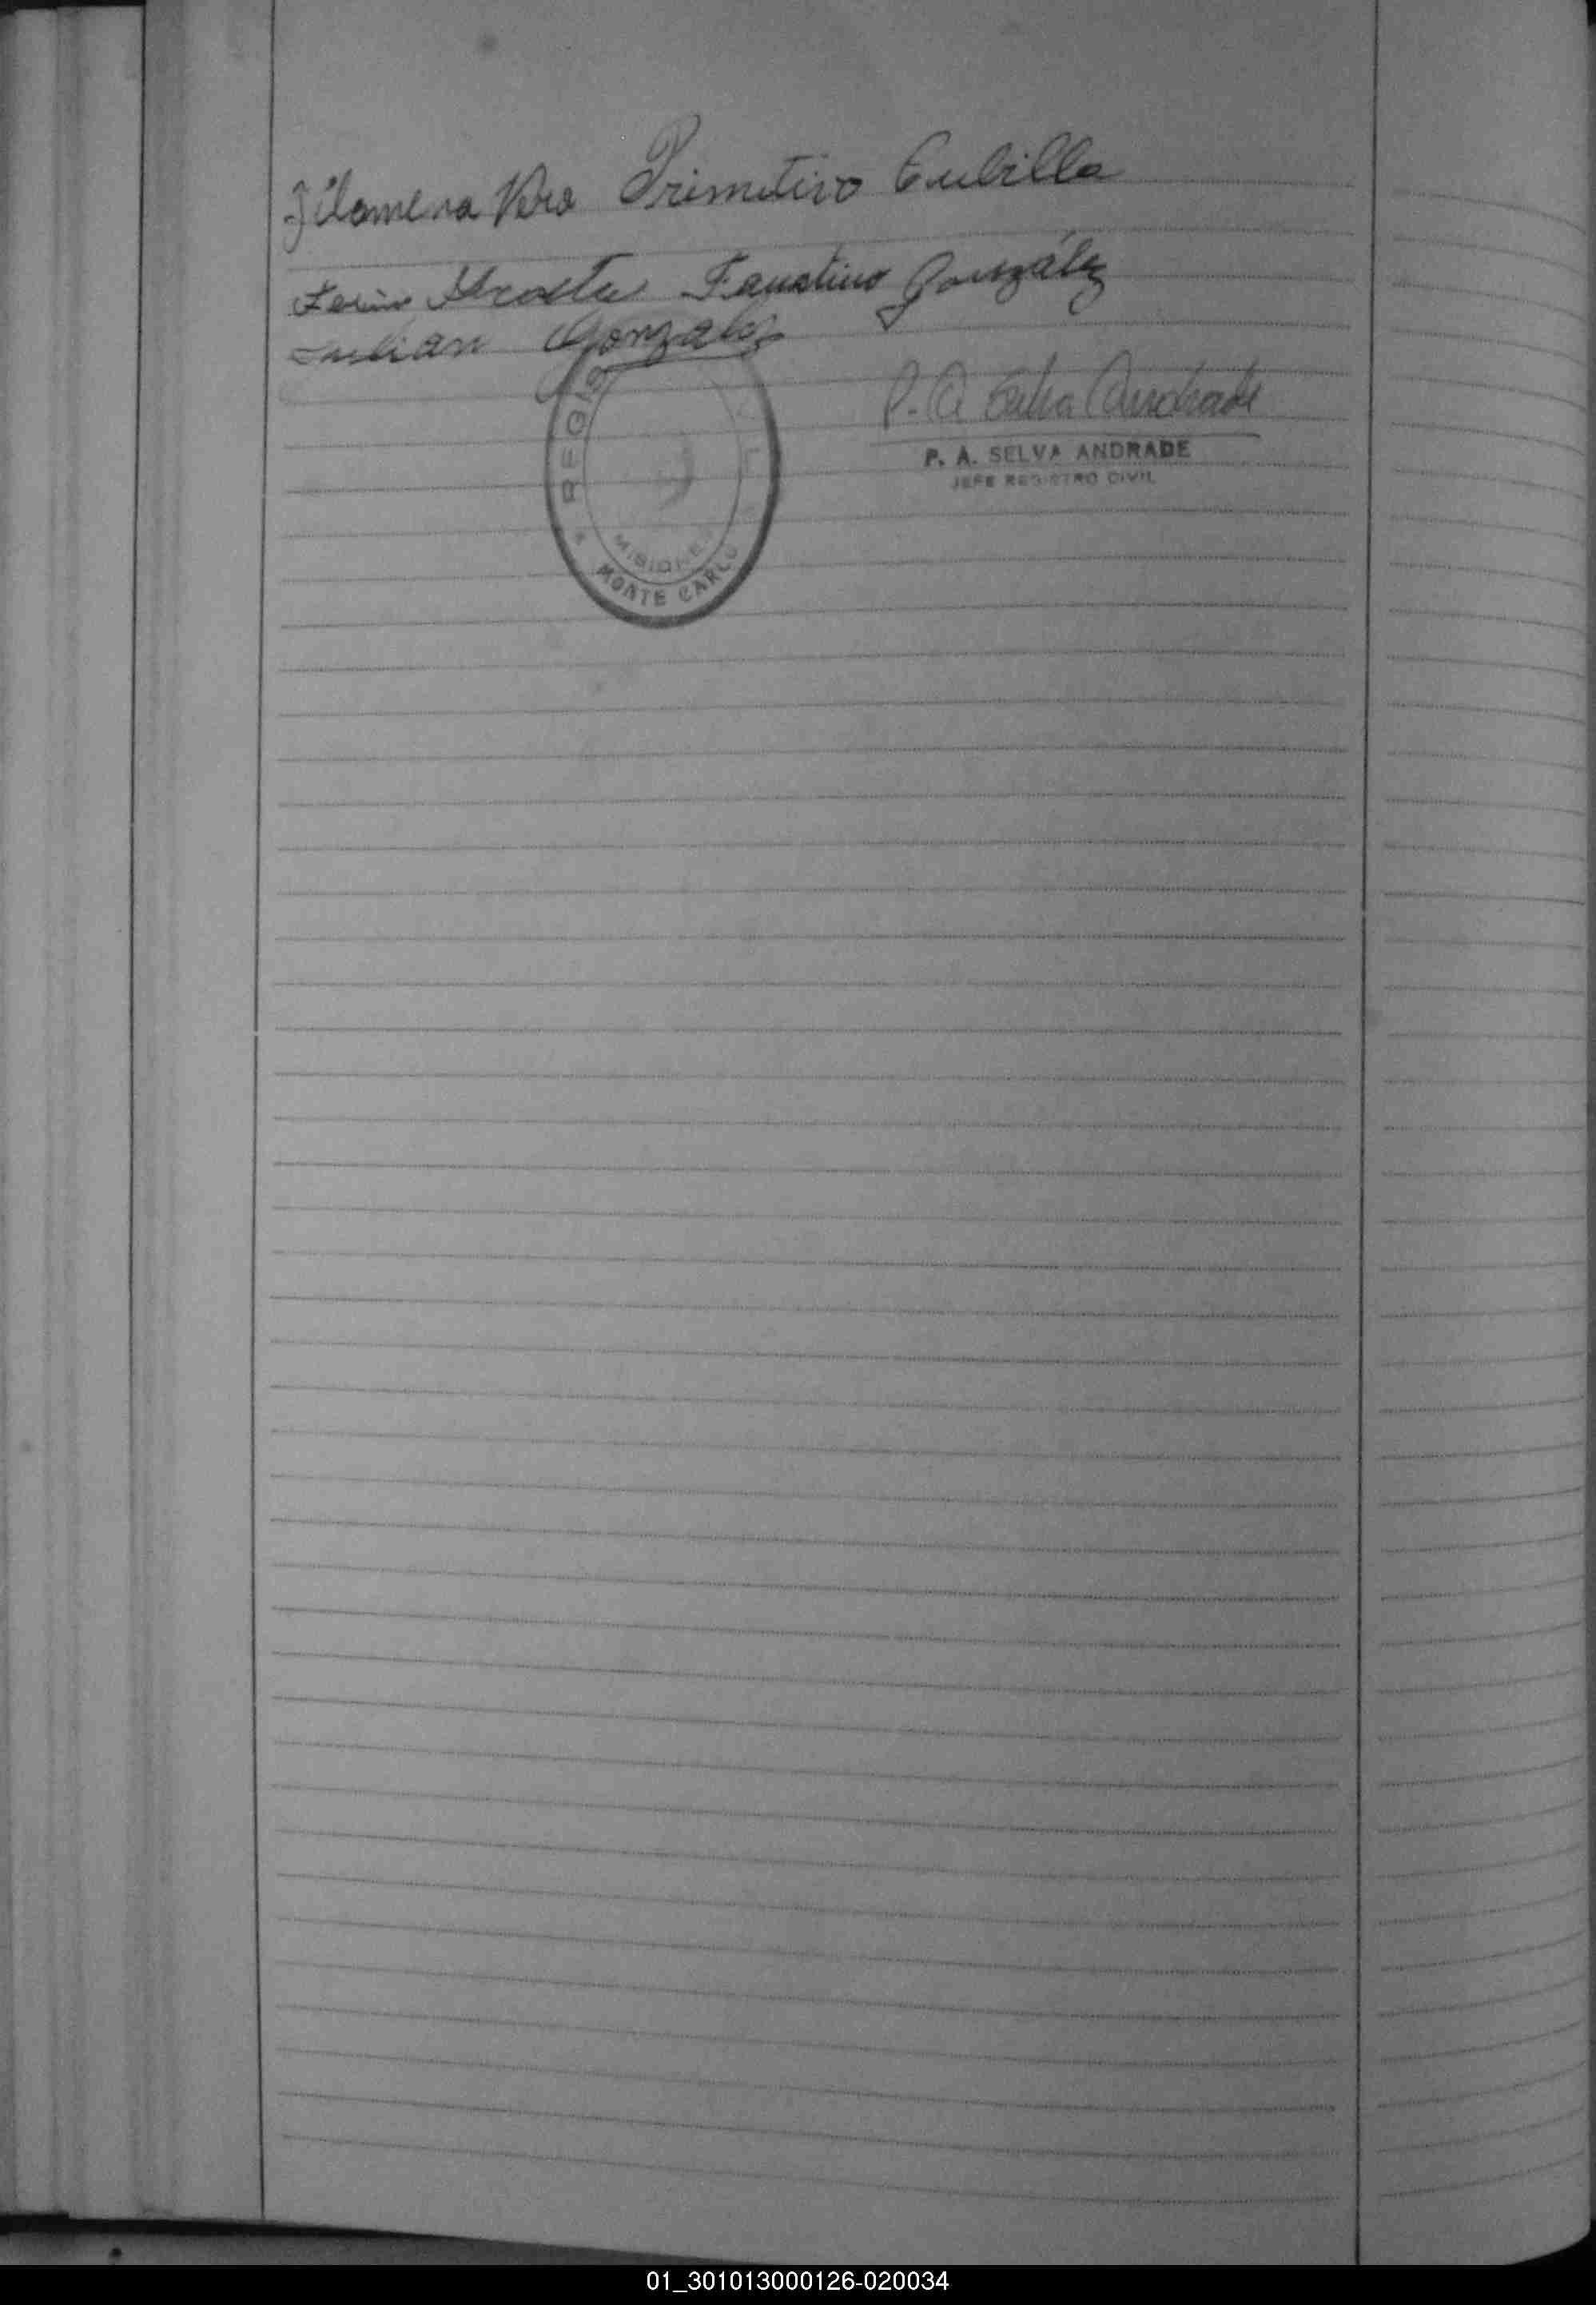 Filomena Vera Primitivo Cubilla
Acosta Faustino González
Julian Gonzalez
P. A. Selva Andrade
P. A. SELVA ANDRADE
JEFE REGISTRO CIVIL
REGIS
MISIONES
MONTE CARLO
01_301013000126-020034